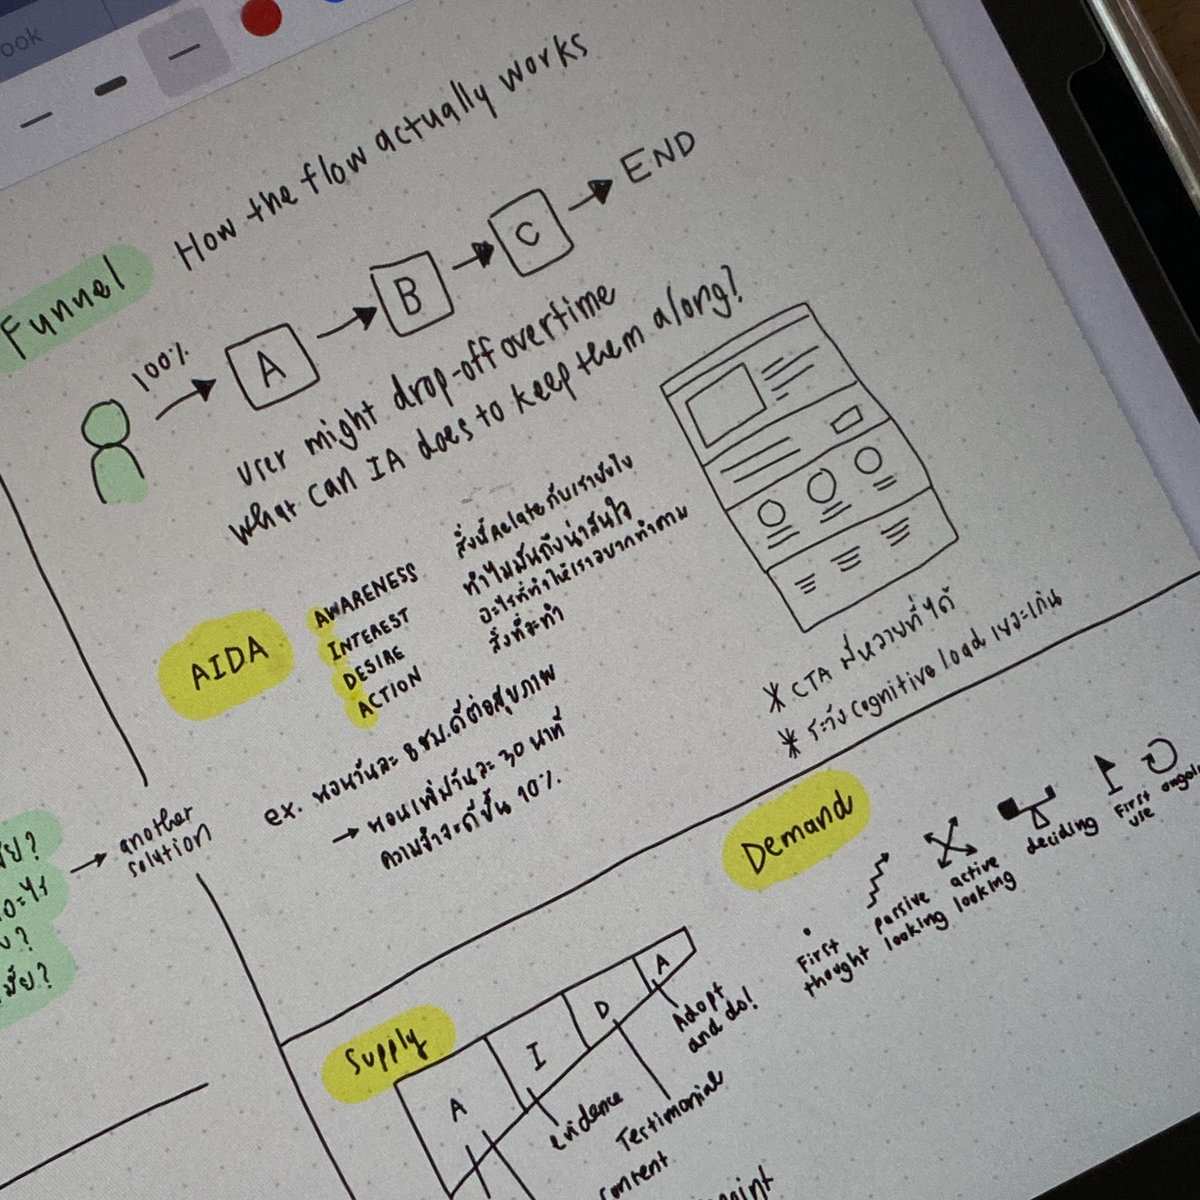 ook
Funnel
How the flow actually works
100%
A
B
C
END
User might drop-off overtime
What can IA does to keep them along?
AIDA
AWARENESS สิ่งนี้ Relate กับเรายังไง
INTEREST ทำไมมันถึงน่าสนใจ
DESIRE อะไรที่ทำให้เราอยากทำตาม
ACTION สิ่งที่จะทำ
ex. นอนวันละ 8 ชม. ดีต่อสุขภาพ
→ นอนเพิ่มวันละ 30 นาที
ความจำจะดีขึ้น 10%.
* CTA มีหลายที่ได้
* ระวัง cognitive load เยอะเกิน
→ another
solution
Demand
First
thought
passive
looking
active
looking
deciding
First
use
Supply
A
I
D
A
Adopt
and do!
Testimonial
evidence
content